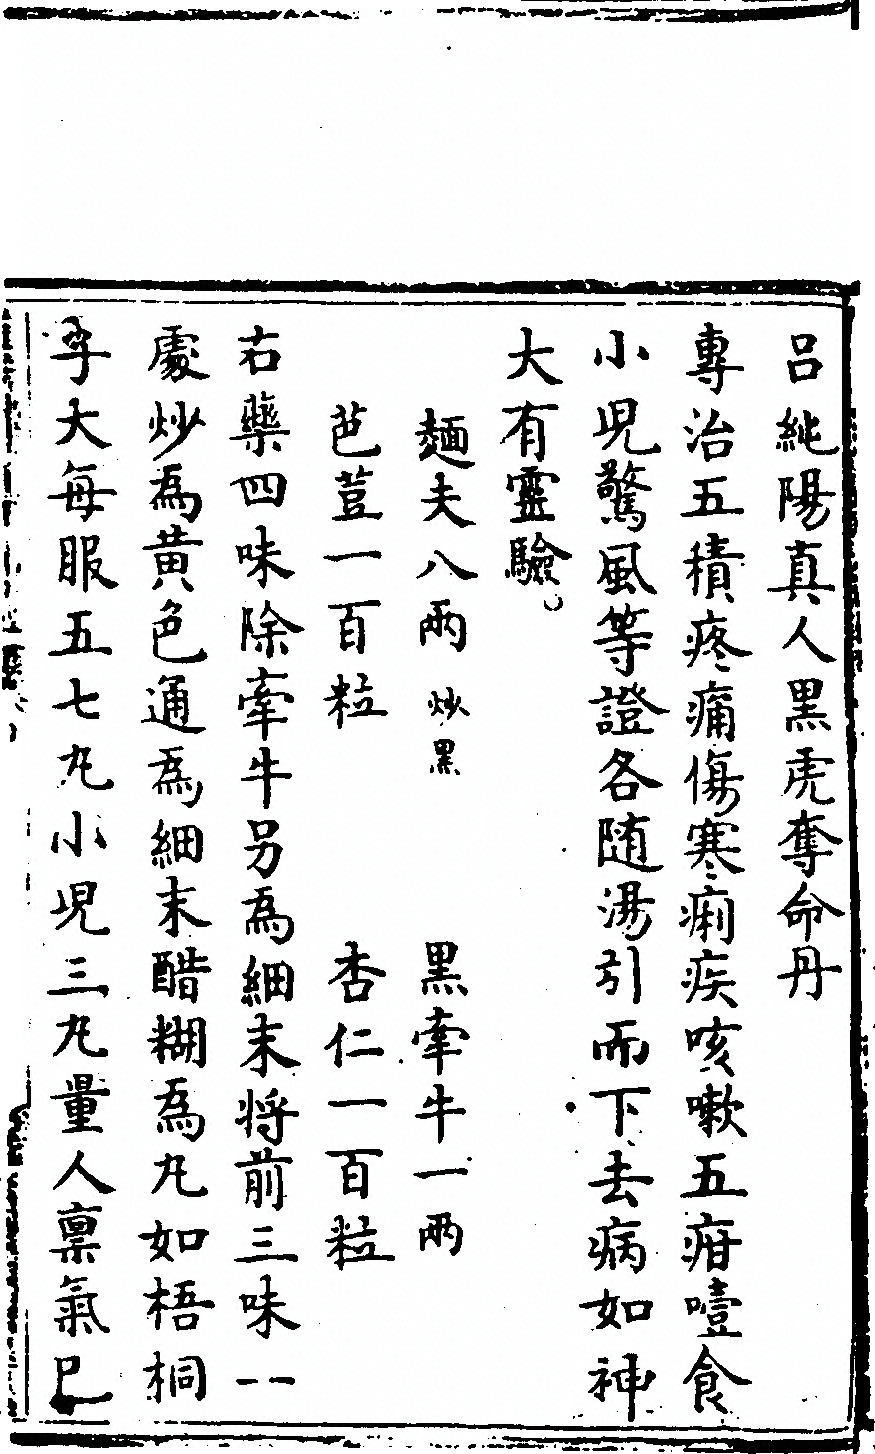 呂純陽真人黑虎奪命丹
專治五積疼痛傷寒痢疾咳嗽五疳噎食
小兒驚風等證各隨湯引而下去病如神
大有靈驗。
麵夫八兩 炒黑 黑牽牛一兩
芭荳一百粒 杏仁一百粒
右藥四味除牽牛另為細末將前三味一
處炒為黃色通為細末醋糊為丸如梧桐
子大每服五七丸小兒三丸量人禀氣巴